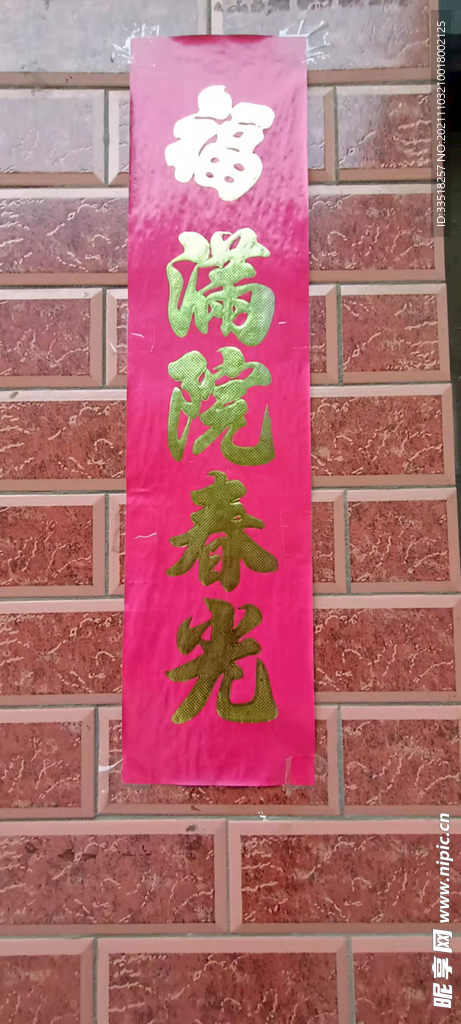 福满院春光
ID:33518257 NO:20211103210018002125
昵享网 www.nipic.cn